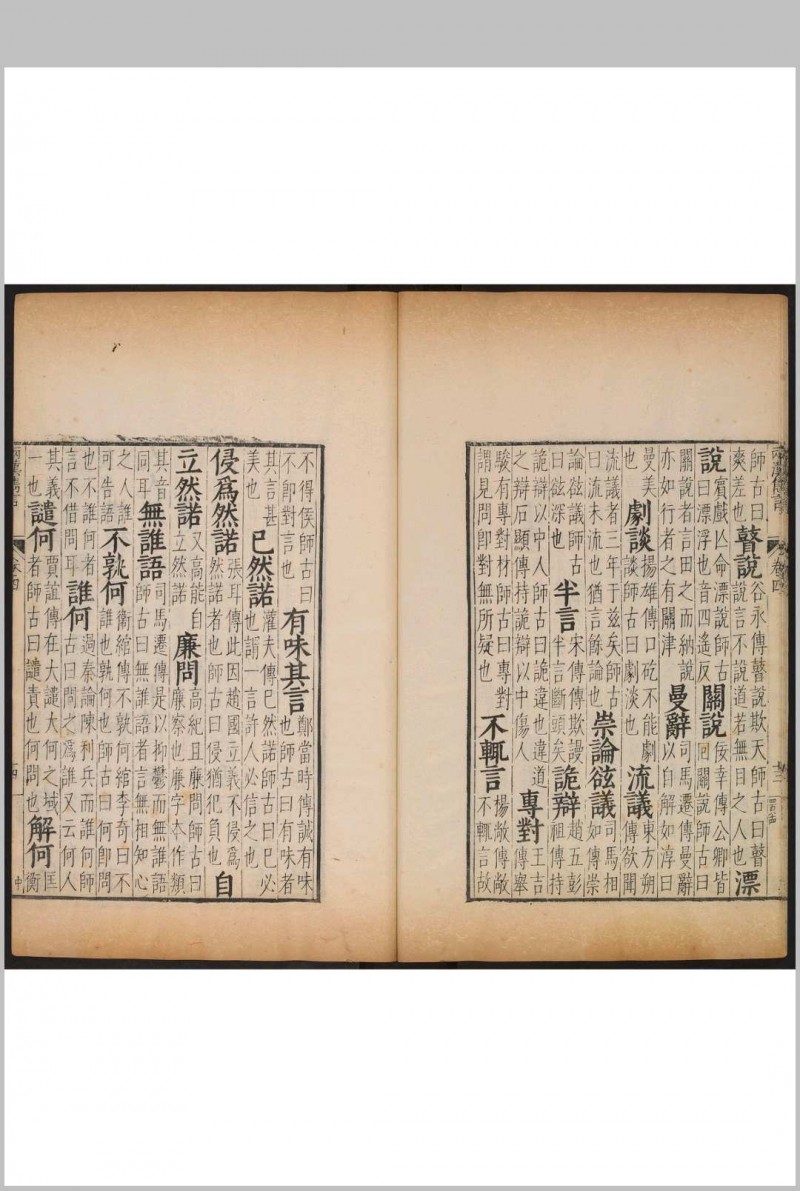 師古曰
爽差也
瞽說
谷永傳瞽說欺天師古曰瞽
說言不說道若無目之人也
漂
說
賓戲亾命漂說師古
曰漂浮也音四遙反
關說
佞幸傳公卿皆
因關說師古曰
關說者言由之而納說
亦如行者之有關津
曼辭
司馬遷傳曼辭
以自解如淳曰
曼美
也
劇談
揚雄傳口吃不能劇
談師古曰劇淡也
流議
東方朔
傳欲聞
流議者三年于兹矣師古
曰流末流也猶言餘論也
崇論谹議
司馬相
如傳崇
論谹議師古
曰谹深也
半言
宋傳傳欺謾
半言斷頭矣
詭辯
趙五彭
祖傳持
詭辯以中人師古曰詭違也違道
之辯石顯傳持詭辯以中傷人
專對
王吉
傳舉
駿有專對材師古曰專對
謂見問卽對無所疑也
不輒言
楊敞傳敞
不輒言故
卷四
不得侯師古曰
不卽對言也
有味其言
鄭當時傳誠有味
也師古曰有味者
其言甚
美也
已然諾
灌夫傳巳然諾師古曰巳必
也謂一言許人必信之也
侵爲然諾
張耳傳此固趙國立義不侵爲
然諾者也師古曰侵猶犯負也
自
立然諾
又高能自
立然諾
廉問
高紀且廉問師古曰
廉察也廉字本作類
其音
同耳
無誰語
司馬遷傳是以抑鬱而無誰語
師古曰無誰語者言無相知心
之人誰
可告語
不孰何
衞綰傳不孰何綰李奇曰不
誰也孰何也師古曰何卽問
也不誰何者
言不借問耳
誰何
過秦論陳利兵而誰何師
古曰問之爲誰又云何人
其義
一也
譴何
賈誼傳在大譴大何之域
者師古曰譴責也何問也
解何
匡
衡